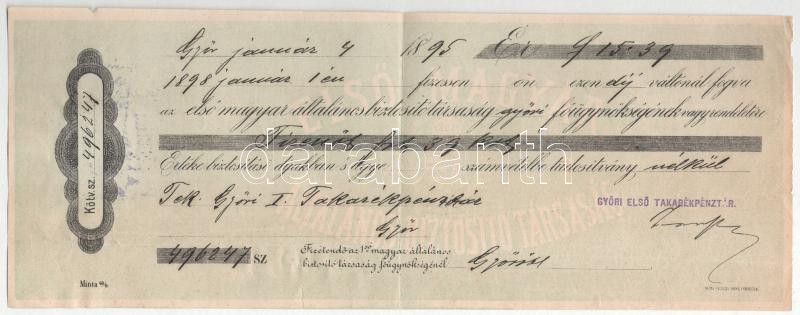 Győr január 4 1895 Er f 15.39
1898 január 1 én fizessen ön ezen díj váltónál fogva
az első magyar általános biztosító társaság győri főügynökségének vagy rendeletére
Tizenöt frt 39 kr
Értéke biztosítási díjakban s tegye számvetelbe tudósítvány nélkül
Tek. Győri I. Takarékpénztár
GYŐRI ELSŐ TAKARÉKPÉNZTÁR.
Győr
496247 SZ
Fizetendő az 1ső magyar általános
biztosító társaság főügynökségénél Győrött
Kötv. sz. 496247
Minta
darabanth